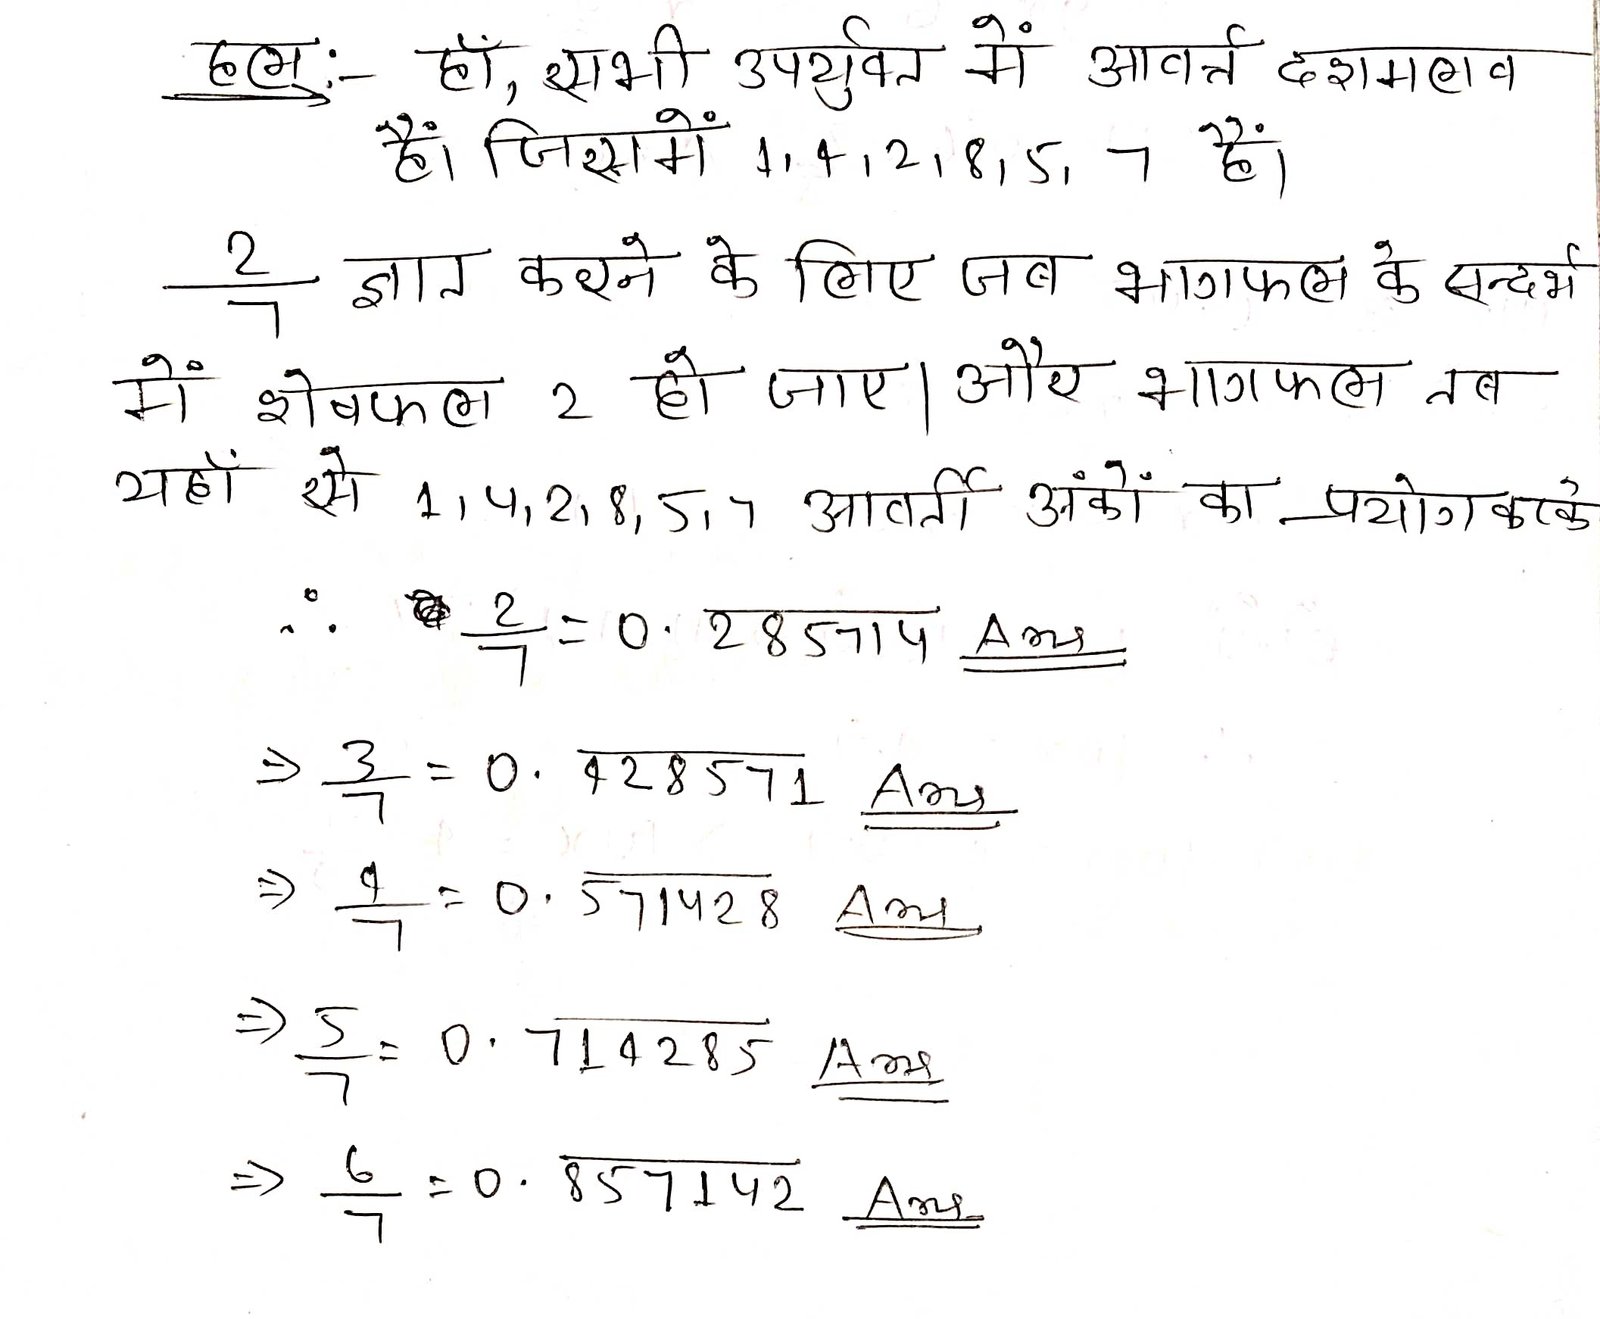 हल:- हाँ, सभी उपर्युक्त में आवर्त्त दशमलव
हैं। जिसमें 1, 4, 2, 8, 5, 7 हैं।
2/7 ज्ञात करने के लिए जब भागफल के सन्दर्भ
में शेषफल 2 हो जाए। और भागफल तब
यहाँ से 1, 4, 2, 8, 5, 7 आवर्ती अंकों का प्रयोग करके
∴ 2/7 = 0.\overline{285714} Ans
⇒ 3/7 = 0.\overline{428571} Ans
⇒ 4/7 = 0.\overline{571428} Ans
⇒ 5/7 = 0.\overline{714285} Ans
⇒ 6/7 = 0.\overline{857142} Ans